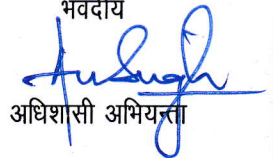 भवदीय
अधिशासी अभियन्ता